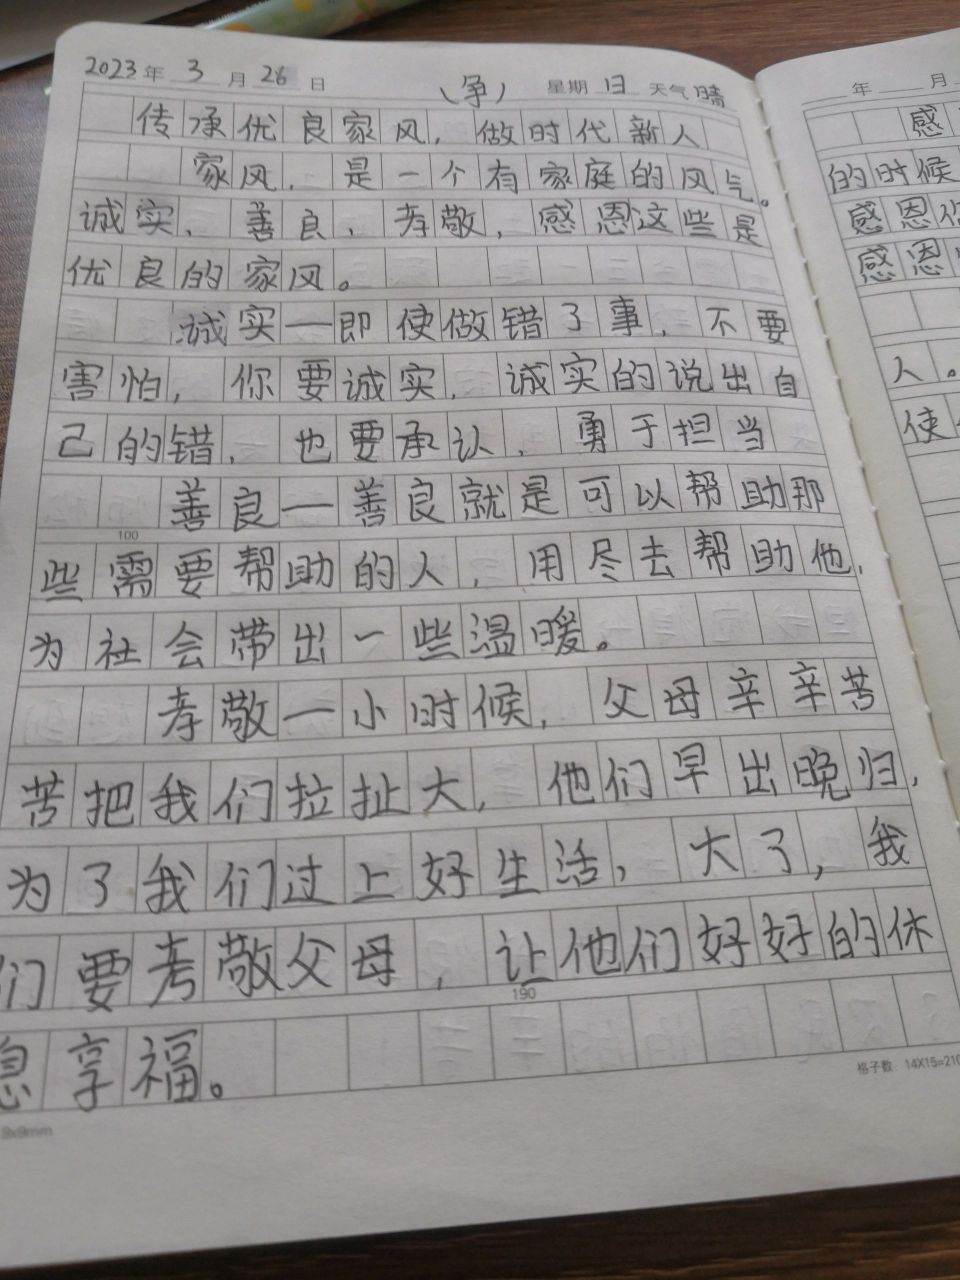 2023年 3 月 26 日 (争) 星期 日 天气 晴
传承优良家风，做时代新人
家风，是一个有家庭的风气。
诚实、善良、孝敬，感恩这些是
优良的家风。
诚实—即使做错了事，不要
害怕，你要诚实，诚实的说出自
己的错，也要承认，勇于担当
善良—善良就是可以帮助那
100
些需要帮助的人，用尽去帮助他，
为社会带出一些温暖。
孝敬—小时候，父母辛辛苦
苦把我们拉扯大，他们早出晚归，
为了我们过上好生活，大了，我
们要孝敬父母，让他们好好的休
190
息享福。
格子数：14X15=210
9x9mm
年 月
感
的时候
感恩
感恩
人。
使